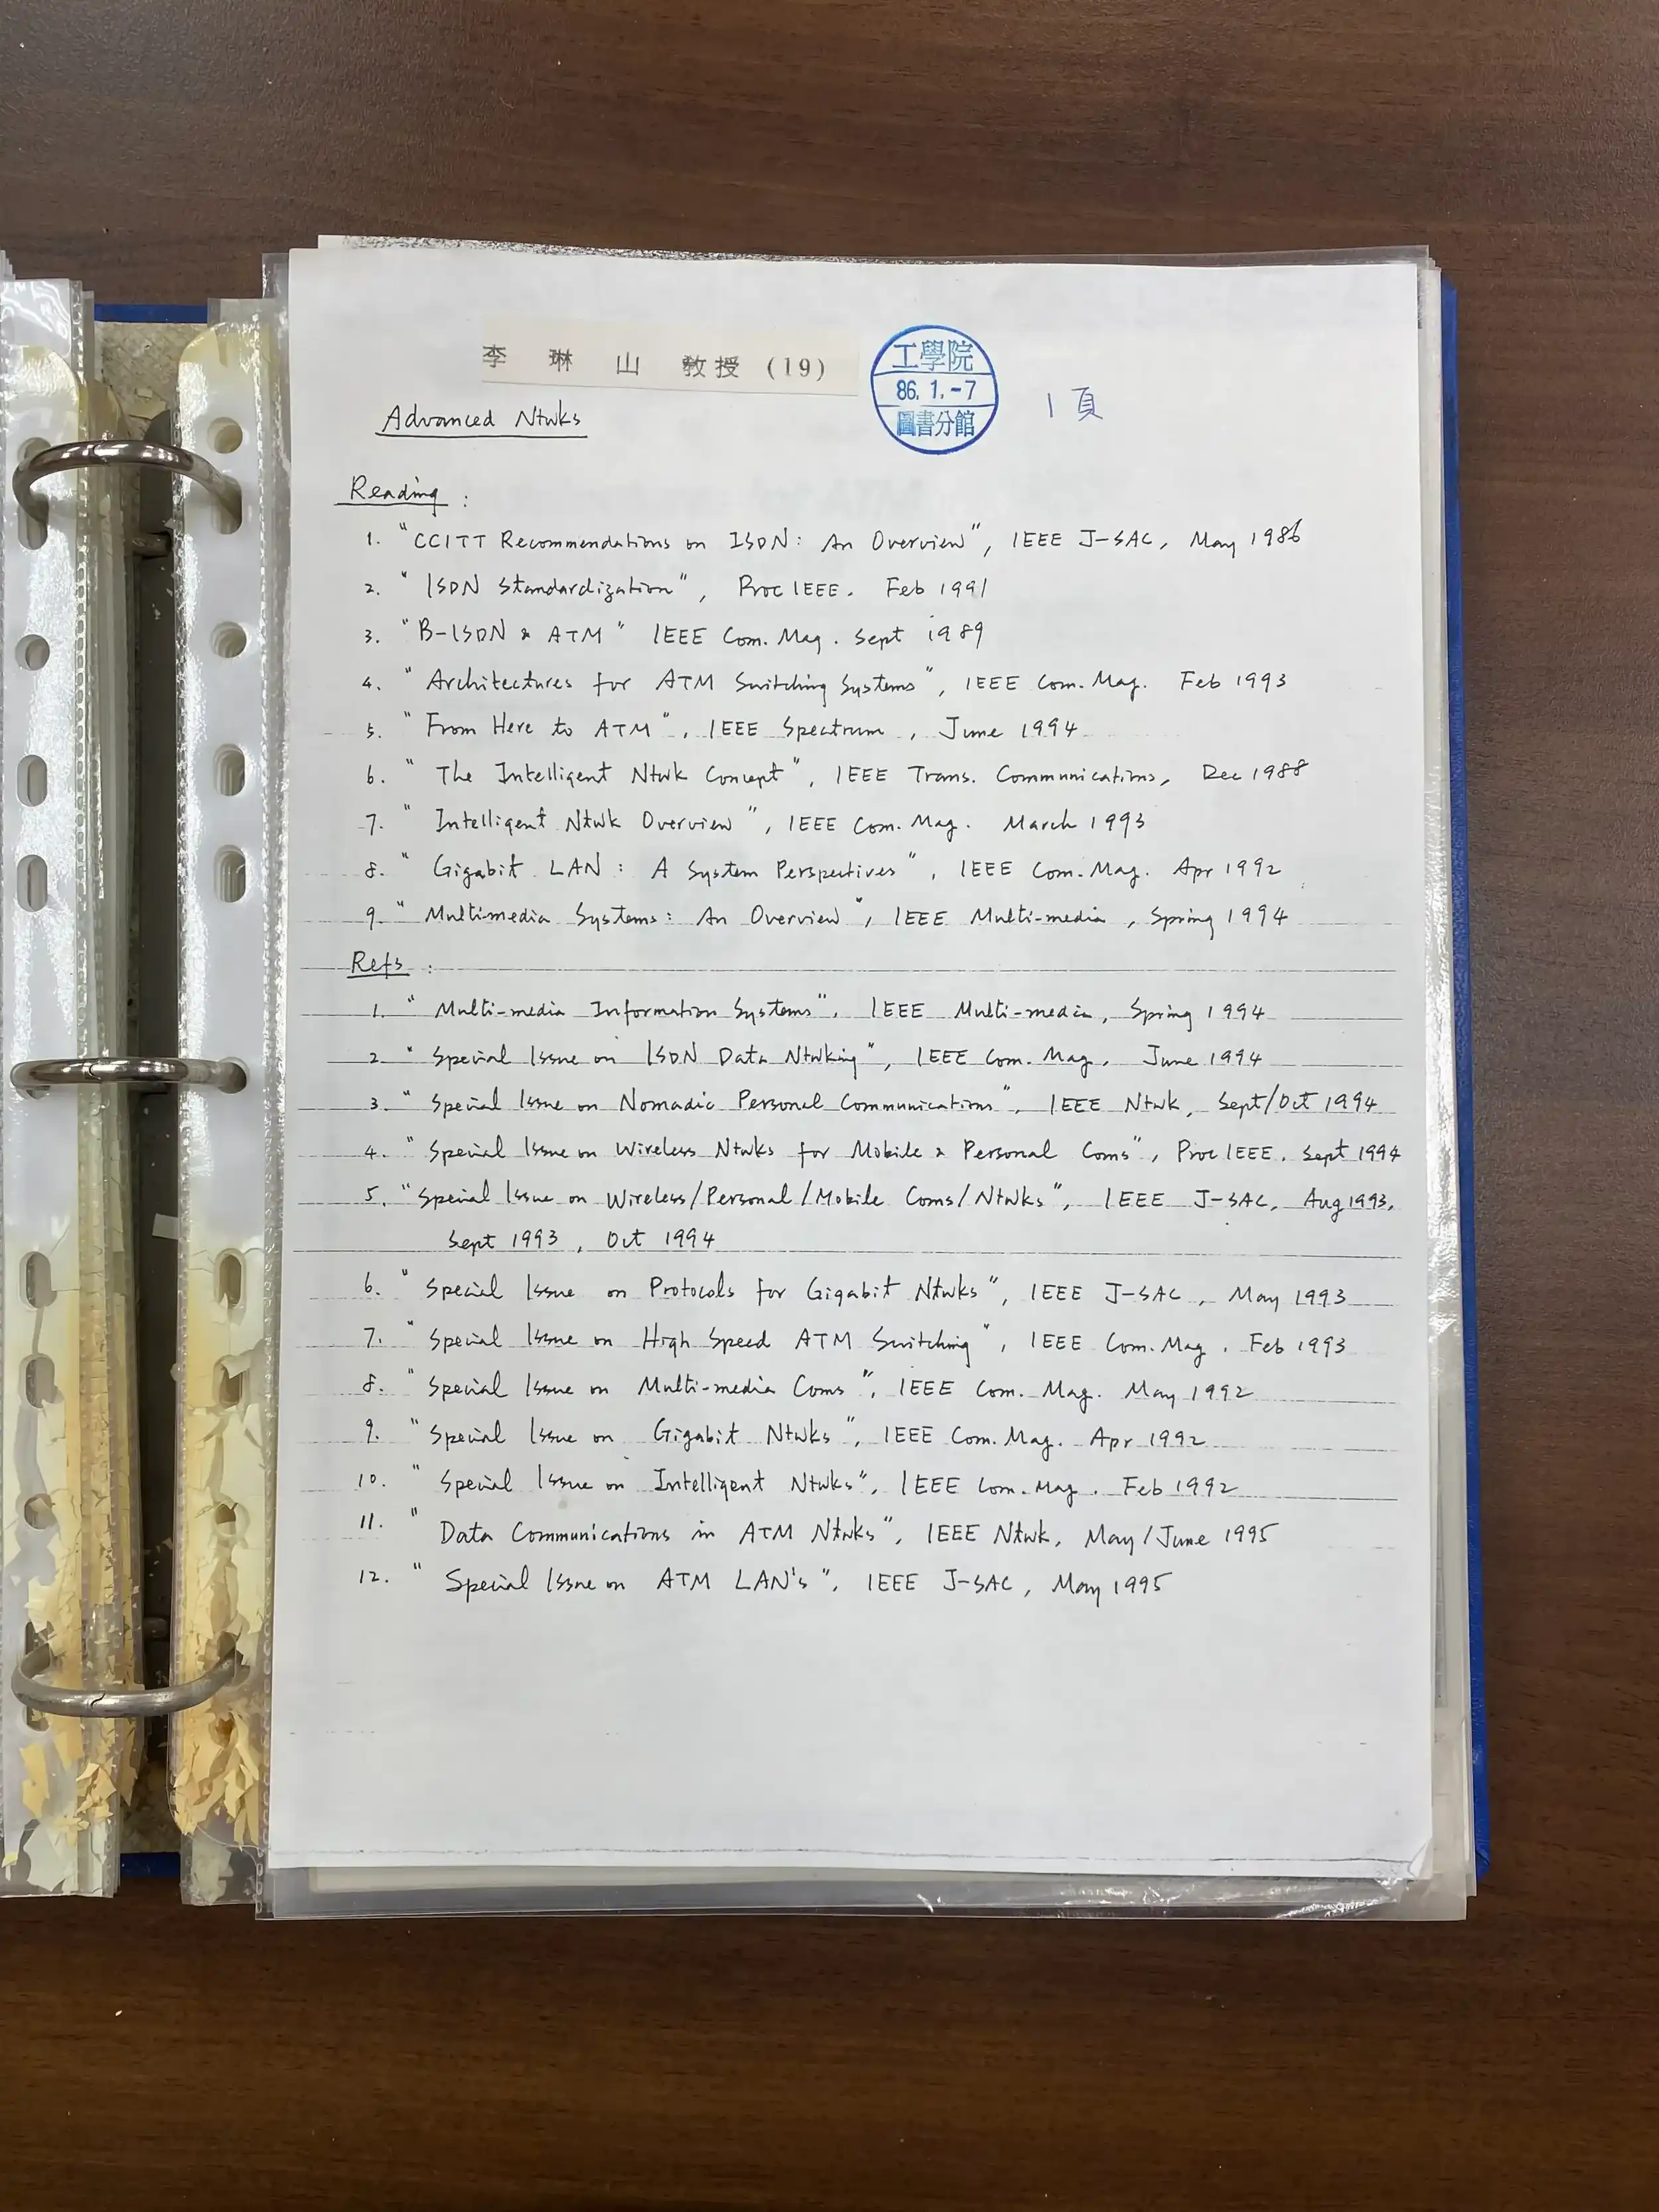 李 琳 山 教授 (19)
工學院
86. 1. -7
圖書分館
1頁
Advanced Ntwks
Reading :
1. "CCITT Recommendations on ISDN: An Overview", IEEE J-SAC, May 1986
2. "ISDN Standardization", Proc IEEE. Feb 1991
3. "B-ISDN & ATM" IEEE Com. Mag. Sept 1989
4. "Architectures for ATM Switching Systems", IEEE Com. Mag. Feb 1993
5. "From Here to ATM", IEEE Spectrum, June 1994
6. "The Intelligent Ntwk Concept", IEEE Trans. Communications, Dec 1988
7. "Intelligent Ntwk Overview", IEEE Com. Mag. March 1993
8. "Gigabit LAN: A System Perspectives", IEEE Com. Mag. Apr 1992
9. "Multimedia Systems: An Overview", IEEE Multi-media, Spring 1994
Refs :
1. "Multi-media Information Systems", IEEE Multi-media, Spring 1994
2. "Special Issue on ISDN Data Ntwking", IEEE Com. Mag. June 1994
3. "Special Issue on Nomadic Personal Communications", IEEE Ntwk, Sept/Oct 1994
4. "Special Issue on Wireless Ntwks for Mobile & Personal Coms", Proc IEEE. Sept 1994
5. "Special Issue on Wireless/Personal/Mobile Coms/Ntwks", IEEE J-SAC, Aug 1993,
Sept 1993, Oct 1994
6. "Special Issue on Protocols for Gigabit Ntwks", IEEE J-SAC, May 1993
7. "Special Issue on High Speed ATM Switching", IEEE Com. Mag. Feb 1993
8. "Special Issue on Multi-media Coms", IEEE Com. Mag. May 1992
9. "Special Issue on Gigabit Ntwks", IEEE Com. Mag. Apr 1992
10. "Special Issue on Intelligent Ntwks", IEEE Com. Mag. Feb 1992
11. "Data Communications in ATM Ntwks", IEEE Ntwk, May/June 1995
12. "Special Issue on ATM LAN's", IEEE J-SAC, May 1995